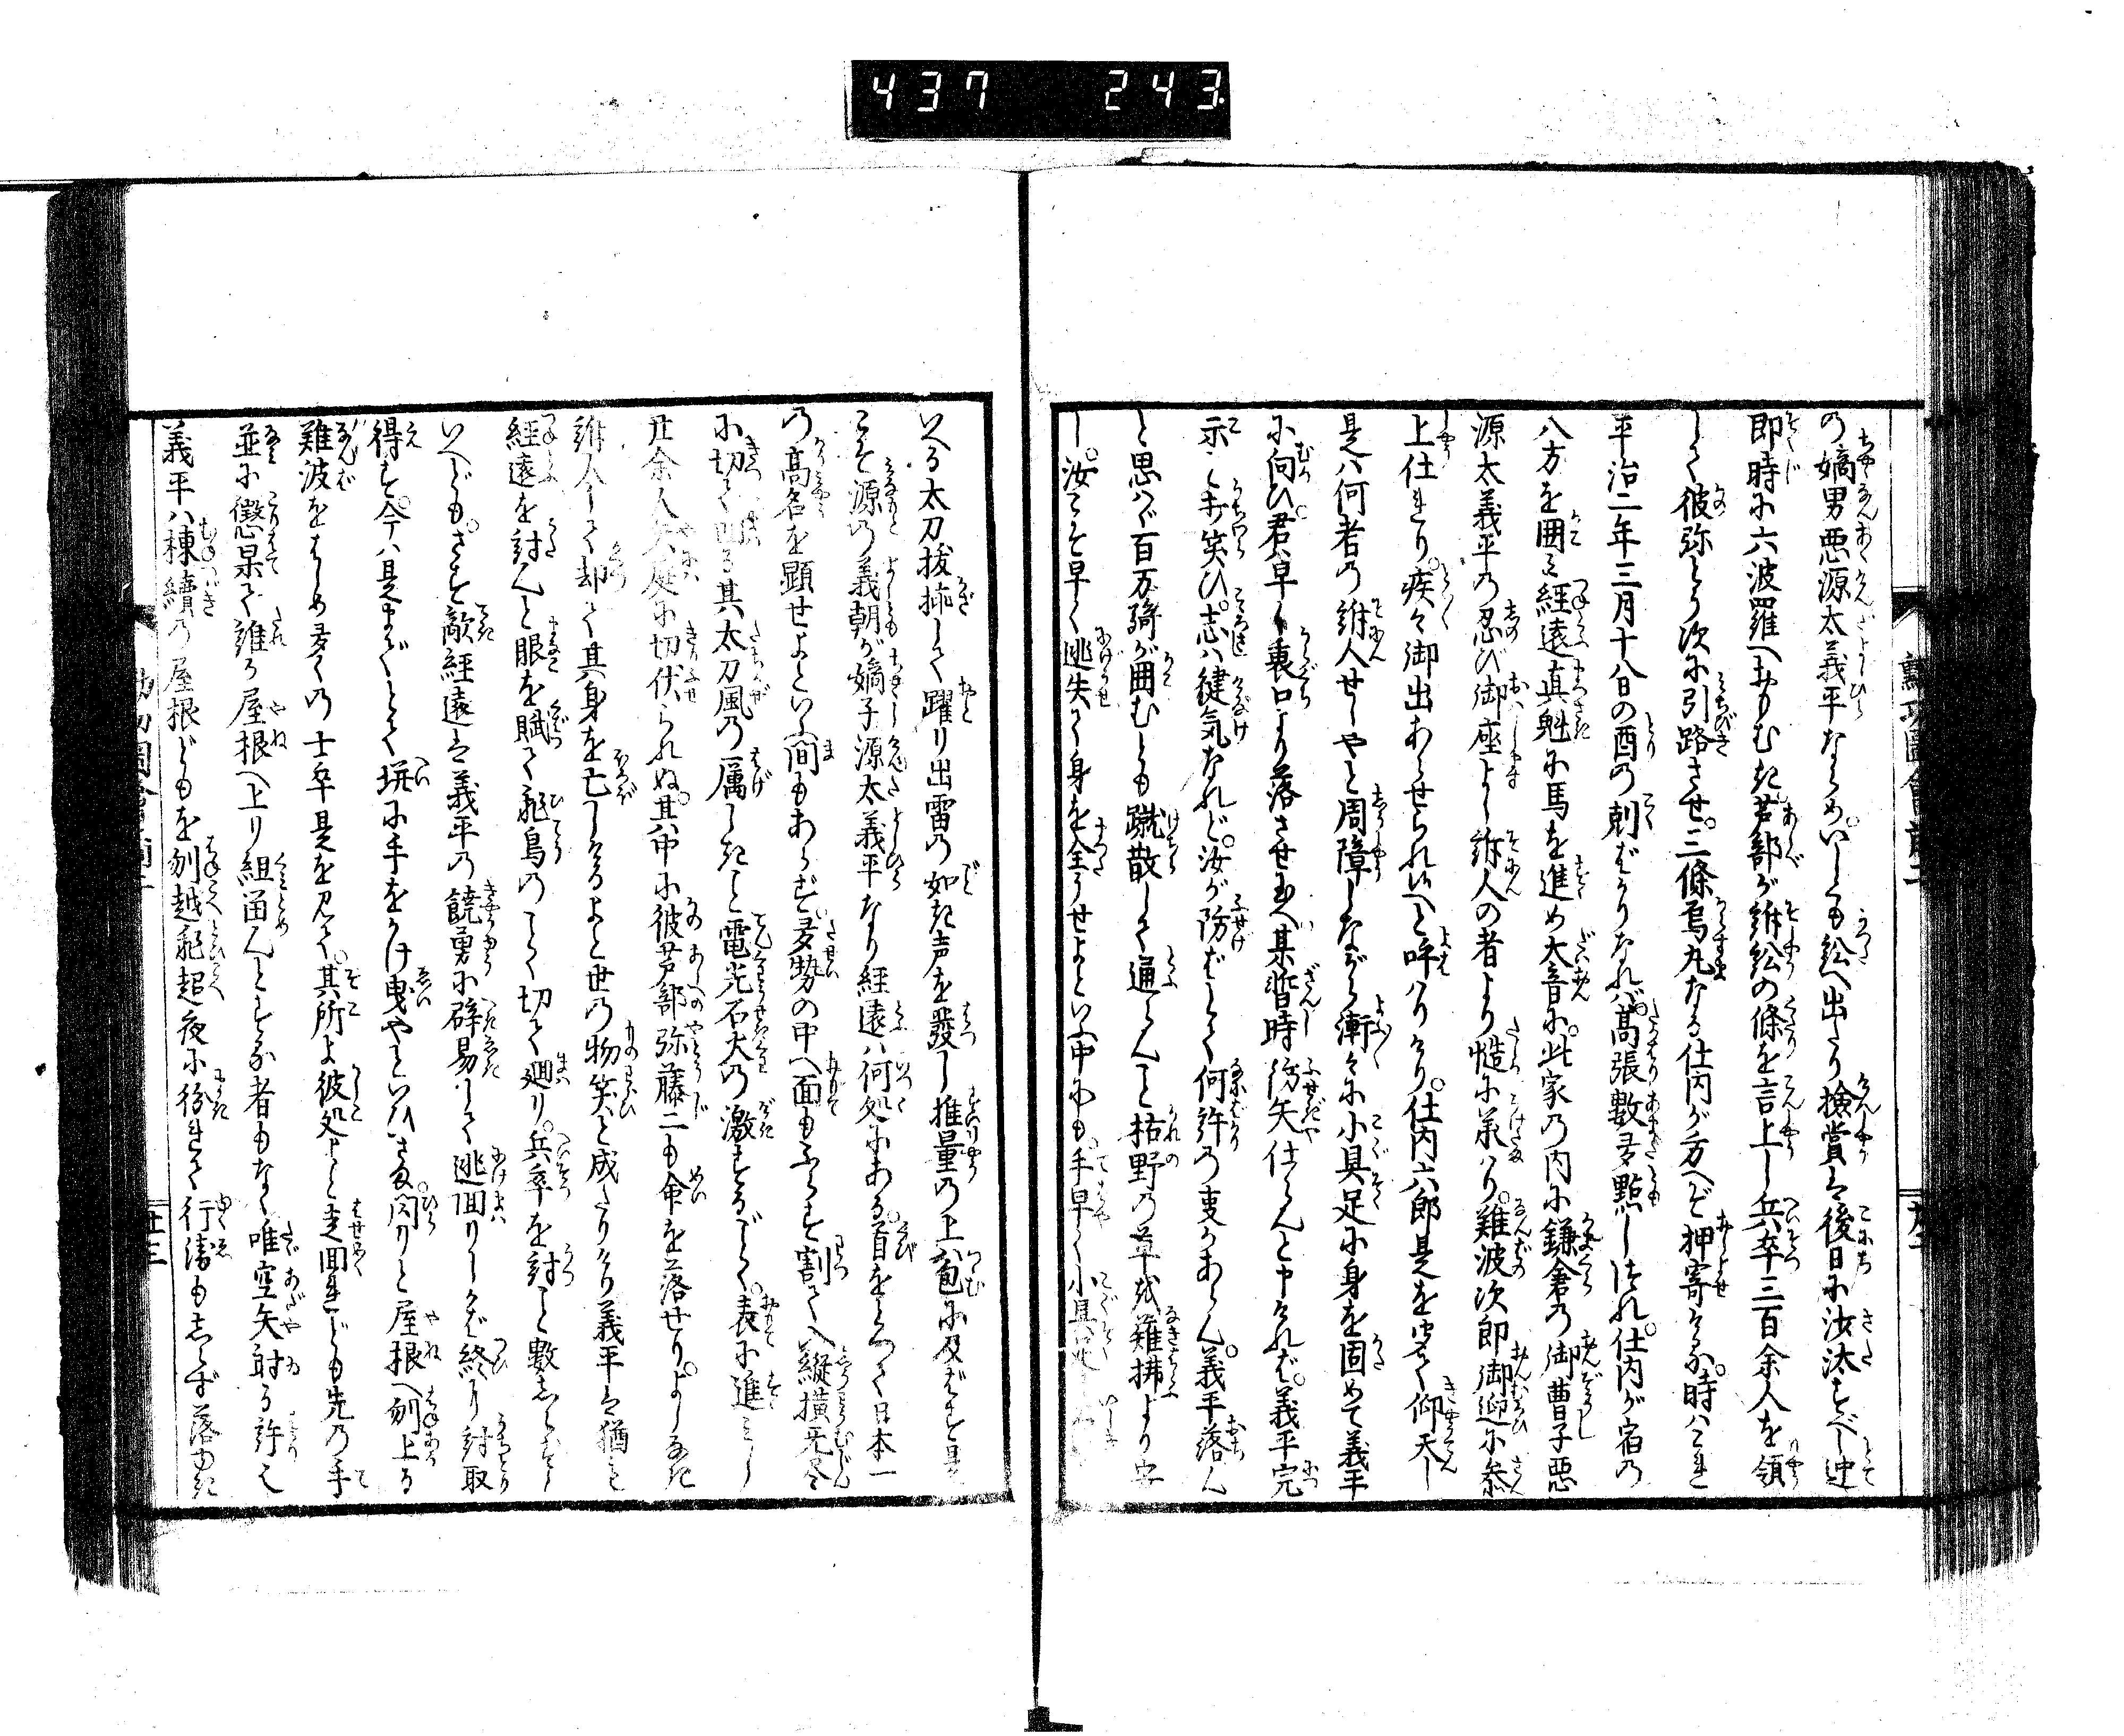 437 243
の嫡男悪源太義平ならめ。いしくも訟へ出たり検賞は後日に沙汰すべし迚
即時に六波羅へおもむき芦部が訴訟の條を言上し兵卒三百余人を領
しく彼弥とう次に引路させ。三條烏丸なる仕内が方へぞ押寄ける。時はこれ
平治二年三月十八日の酉の刻ばかりなれば。高張數多點しつれ。仕内が宿の
八方を囲み経遠真魁に馬を進め大音に。此家の内に鎌倉の御曹子悪
源太義平の忍び御座よし訴人の者より慥に承はり。難波次郎御迎に参
上仕れり。疾々御出あらせられ候へと呼はりけり。仕内六郎是を聞て仰天し
是は何者の訴人せしやと周障しながら漸々に小具足に身を固めて義平
に向ひ。君早く裏口より落させ玉へ某暫時防矢仕らんと申ければ。義平完
示と打笑ひ。志は健気なれど。汝が防ばとて何許の事かあらん。義平落ん
と思はゞ百万騎が囲むとも蹴散して通らんこと枯野の草を薙拂より安
し。汝こそ早く逃失て身を全うせよといふ中にも手早く小具足
いへる太刀抜挿して躍り出雷の如き声を發し推量の上は包に及ばず是
こそ源の義朝が嫡子源太義平なり経遠は何処にある。首をとつて日本一
の高名を顕せよといふ間もあらず多勢の中へ面もふらず割て入縦横无尽
に切て廻る其太刀風の厲しきこと電光石火の激するごとく。表に進みし
廿余人矢庭に切伏られぬ。其中に彼芦部弥藤二も命を落せり。よしなき
訴人して却て其身を亡しけるよと世の物笑と成たりけり義平は猶も
経遠を討んと眼を賦て飛鳥のごとく切て廻り。兵卒を討こと數しらずと
いへども。さすが敵経遠は義平の饒勇に辟易して逃回りしかば終り討取
得ず。今は是までとて塀に手をかけ曳やといひさま閃りと屋根へ刎上る
難波をはじめ多くの士卒是を見て。其所よ彼処よと走回れども先の手
並に懲果て誰か屋根へ上り組留んとする者もなく唯空矢射る許也
義平は棟續の屋根どもを刎越飛超夜に紛れて行衛もしらず落ゆき